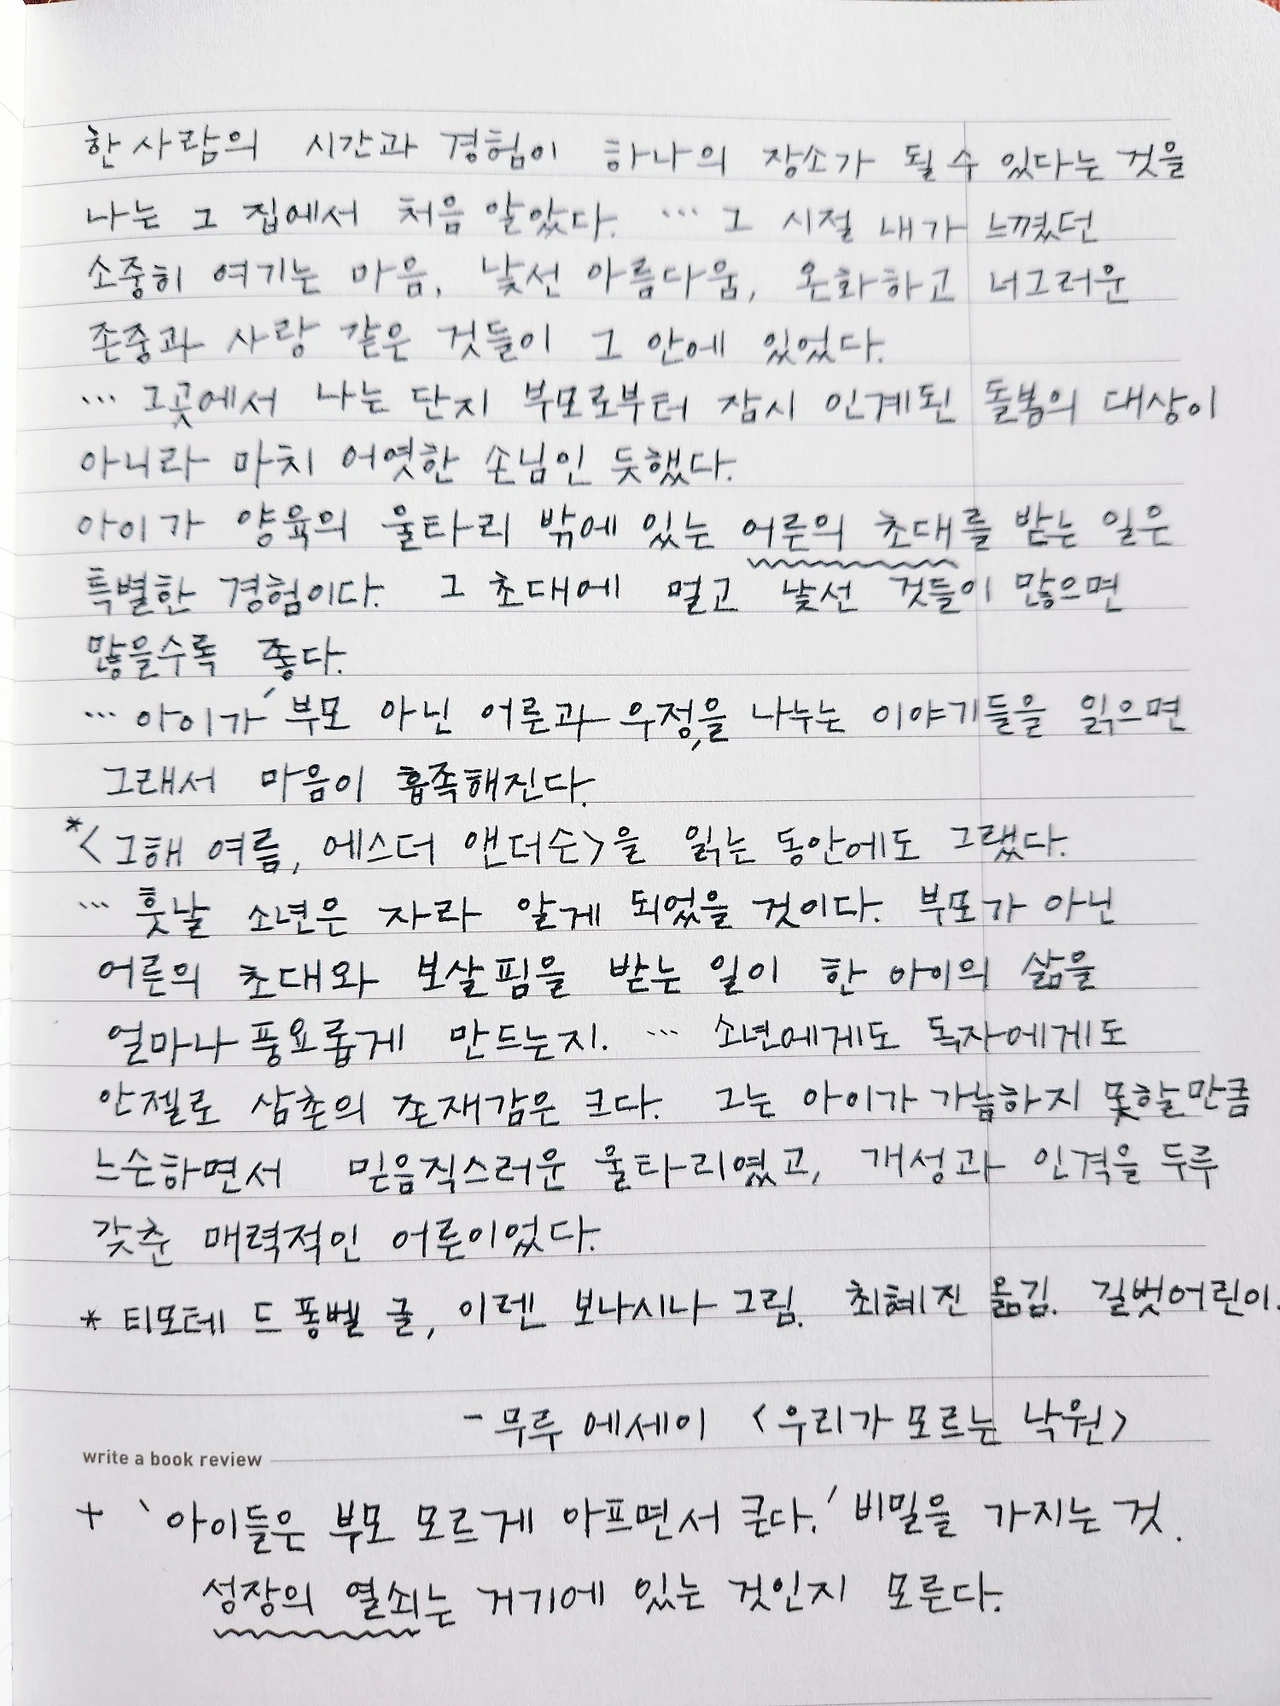 한 사람의 시간과 경험이 하나의 장소가 될 수 있다는 것을
나는 그 집에서 처음 알았다. … 그 시절 내가 느꼈던
소중히 여기는 마음, 낯선 아름다움, 온화하고 너그러운
존중과 사랑 같은 것들이 그 안에 있었다.
… 그곳에서 나는 단지 부모로부터 잠시 인계된 돌봄의 대상이
아니라 마치 어엿한 손님인 듯했다.
아이가 양육의 울타리 밖에 있는 어른의 초대를 받는 일은
특별한 경험이다. 그 초대에 멀고 낯선 것들이 많으면
많을수록 좋다.
… 아이가 '부모 아닌 어른과 우정'을 나누는 이야기들을 읽으면
그래서 마음이 흡족해진다.
*<그해 여름, 에스더 앤더슨>을 읽는 동안에도 그랬다.
… 훗날 소년은 자라 알게 되었을 것이다. 부모가 아닌
어른의 초대와 보살핌을 받는 일이 한 아이의 삶을
얼마나 풍요롭게 만드는지. … 소년에게도 독자에게도
안젤로 삼촌의 존재감은 크다. 그는 아이가 가늠하지 못할만큼
느슨하면서 믿음직스러운 울타리였고, 개성과 인격을 두루
갖춘 매력적인 어른이었다.
* 티모테 드 퐁벨 글, 이렌 보나시나 그림. 최혜진 옮김. 길벗어린이.
- 무루 에세이 <우리가 모르는 낙원>
write a book review
+ '아이들은 부모 모르게 아프면서 큰다.' 비밀을 가지는 것.
성장의 열쇠는 거기에 있는 것인지 모른다.